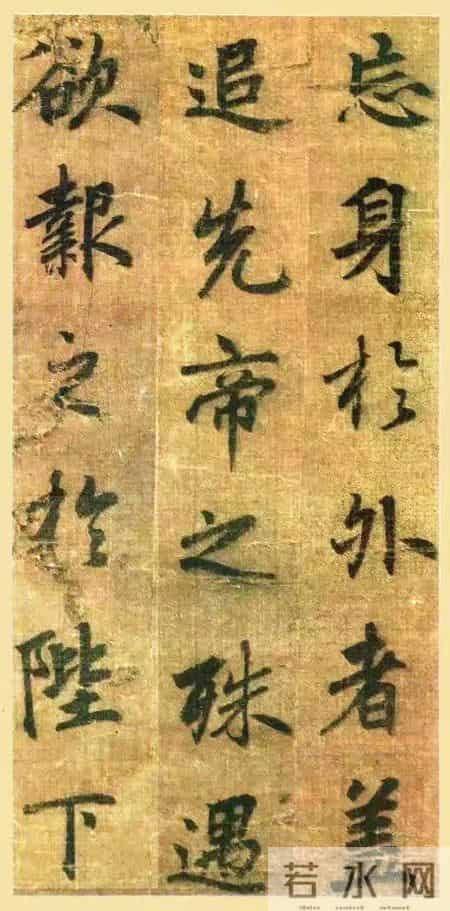 忘身於外者盖
追先帝之殊遇
欲報之於陛下
若水网